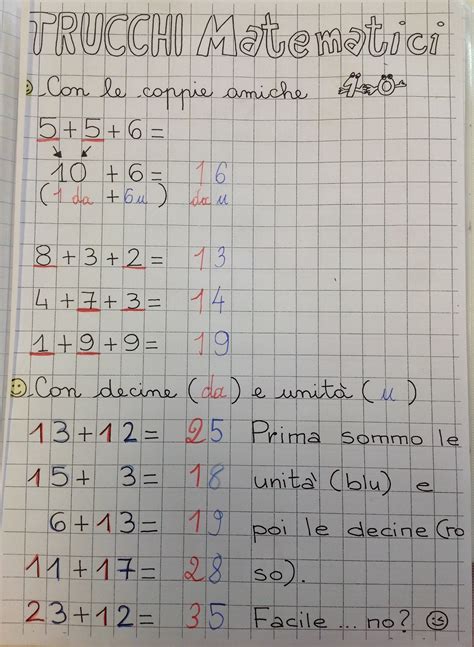 TRUCCHI Matematici
Con le coppie amiche 10
5+5+6=
10 +6= 16
(1 da +6u) da u
8+3+2= 13
4+7+3= 14
1+9+9= 19
Con decine (da) e unità (u)
13+12= 25 Prima sommo le
15+ 3= 18 unità (blu) e
6+13= 19 poi le decine (ro
11+17= 28 so).
23+12= 35 Facile ... no?